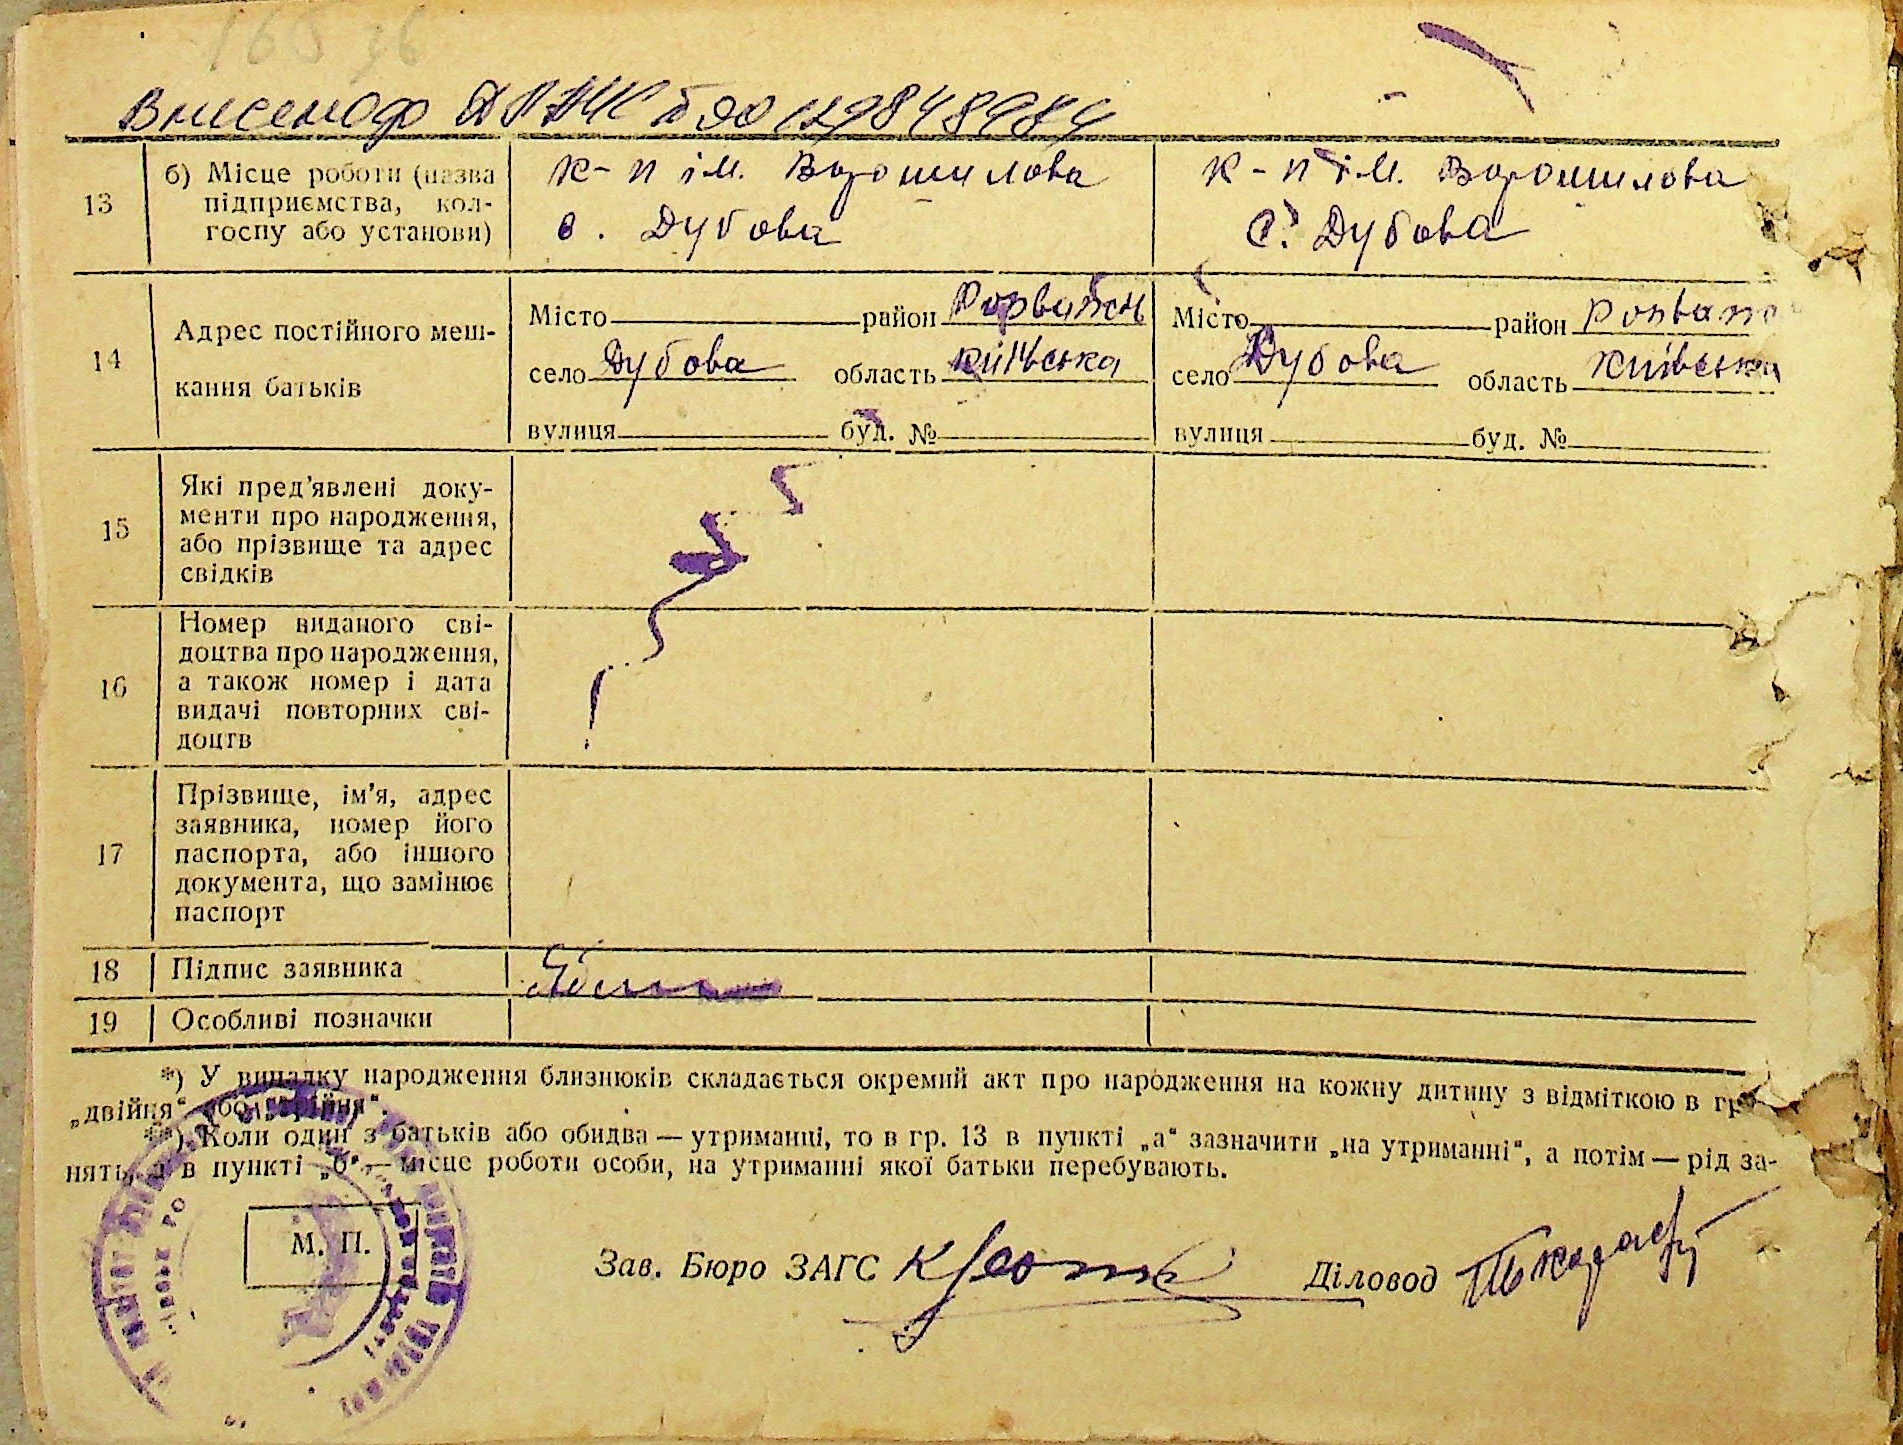 13
б) Місце роботи (назва
підприємства, кол-
госпу або установи)
к-п ім. Ворошилова
с. Дубова
к-п ім. Ворошилова
с. Дубова
14
Адрес постійного меш-
кання батьків
Місто район
село Дубова область Київська
вулиця буд. №
Місто район
село Дубова область Київська
вулиця буд. №
15
Які пред'явлені доку-
менти про народження,
або прізвище та адрес
свідків
16
Номер виданого сві-
доцтва про народження,
а також номер і дата
видачі повторних сві-
доцтв
17
Прізвище, ім'я, адрес
заявника, номер його
паспорта, або іншого
документа, що замінює
паспорт
18
Підпис заявника
19
Особливі позначки
*) У випадку народження близнюків складається окремий акт про народження на кожну дитину з відміткою в гр.
„двійня“ або „трійня“.
**) Коли один з батьків або обидва — утриманці, то в гр. 13 в пункті „а“ зазначити „на утриманні“, а потім — рід за-
няття, а в пункті „б“ — місце роботи особи, на утриманні якої батьки перебувають.
М. П.
Зав. Бюро ЗАГС
Діловод